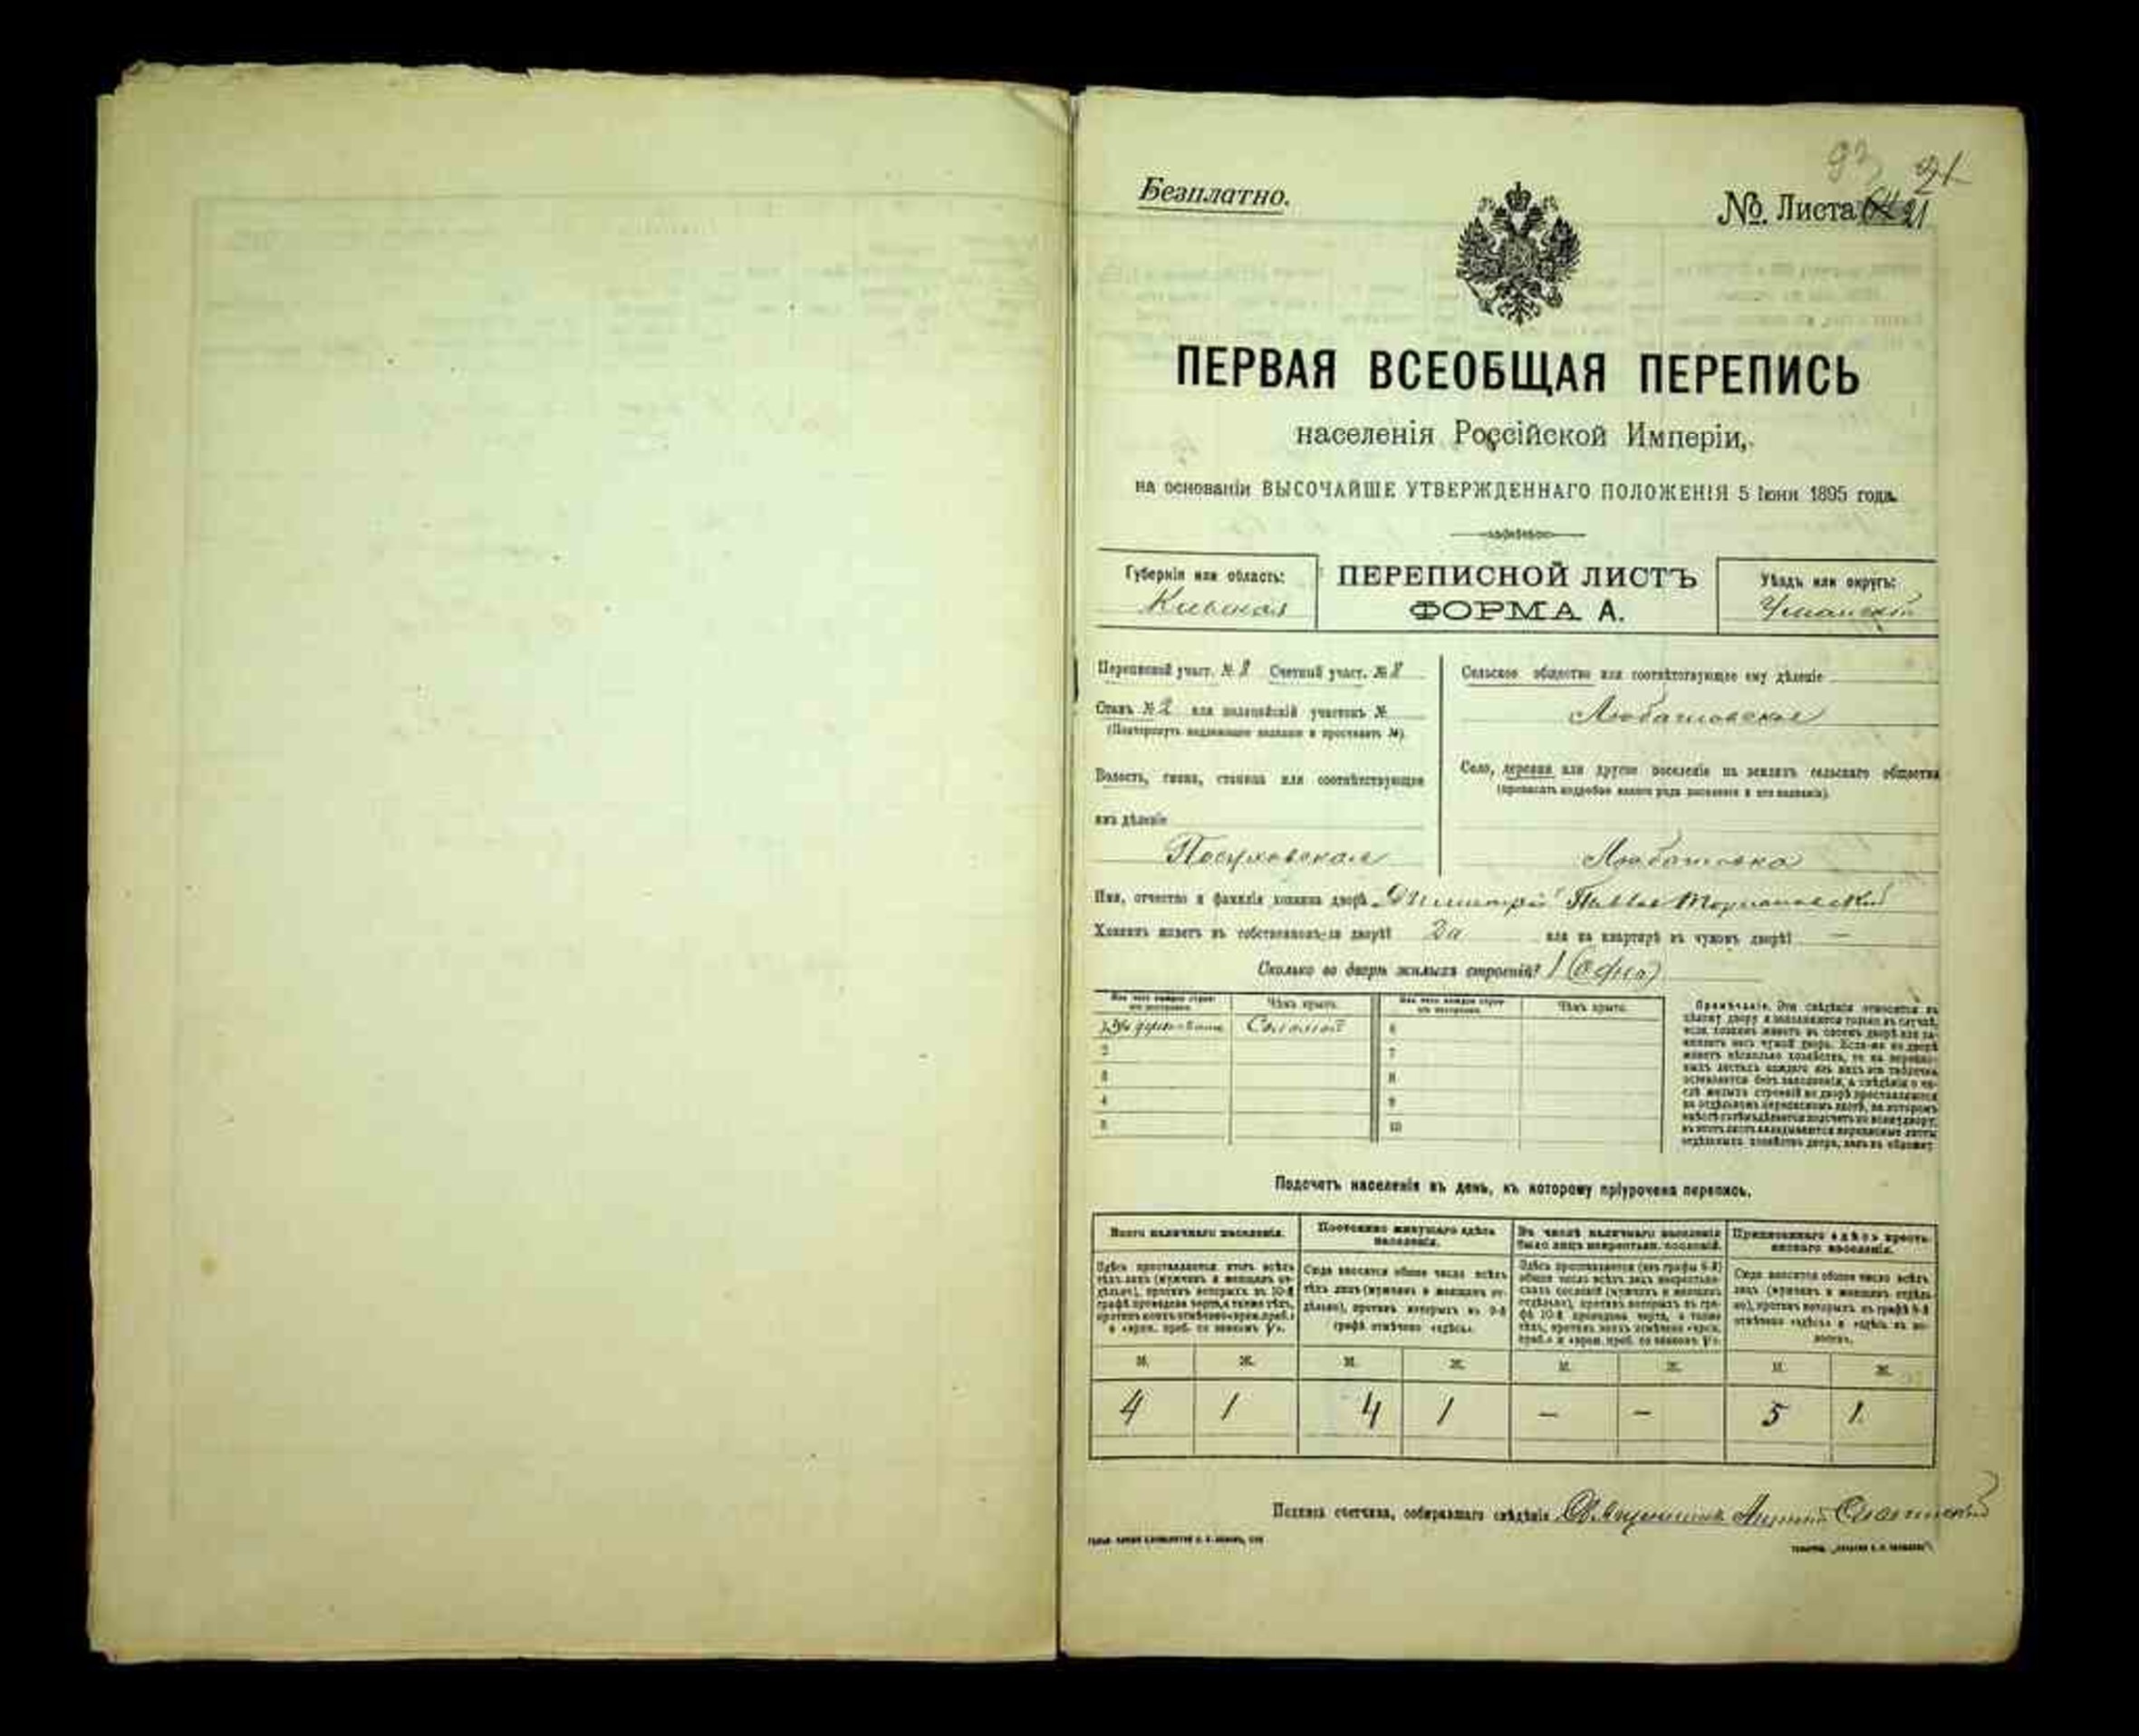 93 21
Безплатно.
№ Листа 21
ПЕРВАЯ ВСЕОБЩАЯ ПЕРЕПИСЬ
населенія Россійской Имперіи,
на основаніи ВЫСОЧАЙШЕ УТВЕРЖДЕННАГО ПОЛОЖЕНІЯ 5 Іюня 1895 года.
Губернія или область:
Кіевская
ПЕРЕПИСНОЙ ЛИСТЪ
ФОРМА А.
Уѣздъ или округъ:
Уманскій
Переписной участ. № 8 Счетный участ. № 8
Станъ № 2 или полицейскій участокъ №
(Подчеркнуть надлежащее названіе и проставить №)
Волость, гмина, станица или соотвѣтствующее
имъ дѣленіе
Посуховская
Сельское общество или соотвѣтствующее ему дѣленіе
Любашовское
Село, деревня или другое поселеніе на земляхъ сельскаго общества
(прописать подробно какого рода поселеніе и его названіе).
Любашовка
Имя, отчество и фамилія хозяина двора Дмитрій
Хозяинъ живетъ въ собственномъ-ли дворѣ? Да или на квартирѣ въ чужомъ дворѣ? —
Сколько во дворѣ жилыхъ строеній? 1 (одно)
Изъ чего каждое строеніе построено. Чѣмъ крыто. Изъ чего каждое строеніе построено. Чѣмъ крыто.
1 Соломой 6
2 7
3 8
4 9
5 10
Примѣчаніе. Эти свѣдѣнія относятся къ
цѣлому двору и заполняются только въ случаѣ,
если хозяинъ живетъ въ своемъ дворѣ или за-
нимаетъ весь чужой дворъ. Если-же во дворѣ
живетъ нѣсколько хозяйствъ, то на перепис-
ныхъ листахъ каждаго изъ нихъ эта табличка
оставляется безъ заполненія, а свѣдѣнія о чи-
слѣ жилыхъ строеній во дворѣ проставляются
на отдѣльномъ переписномъ листѣ, на которомъ
въ этотъ листъ вкладываются переписные листы
отдѣльныхъ хозяйствъ двора, какъ въ обложку.
Подсчетъ населенія въ день, къ которому пріурочена перепись.
Всего наличнаго населенія.
Здѣсь проставляется итогъ всѣхъ
тѣхъ лицъ (мужчинъ и женщинъ от-
дѣльно), противъ которыхъ въ 10-й
графѣ проведена черта, а также тѣхъ,
противъ коихъ отмѣчено «врем. преб.»
и «врем. преб. со знакомъ V».
Постоянно живущаго здѣсь
населенія.
Сюда вносится общее число всѣхъ
тѣхъ лицъ (мужчинъ и женщинъ от-
дѣльно), противъ которыхъ въ 9-й
графѣ отмѣчено «здѣсь».
Въ числѣ наличнаго населенія
было лицъ некрестьян. сословій.
Здѣсь проставляется (изъ графы 8-й)
общее число всѣхъ лицъ некрестьян-
скихъ сословій (мужчинъ и женщинъ
отдѣльно), противъ которыхъ въ гра-
фѣ 10-й проведена черта, а также
тѣхъ, противъ коихъ отмѣчено «врем.
преб.» и «врем. преб. со знакомъ V».
Приписаннаго здѣсь кресть-
янскаго населенія.
Сюда вносится общее число всѣхъ
лицъ (мужчинъ и женщинъ отдѣль-
но), противъ которыхъ въ графѣ 8-й
отмѣчено «здѣсь» и «здѣсь въ во-
лости».
М. Ж. М. Ж. М. Ж. М. Ж.
4 1 4 1 — — 5 1.
Подпись счетчика, собиравшаго свѣдѣнія